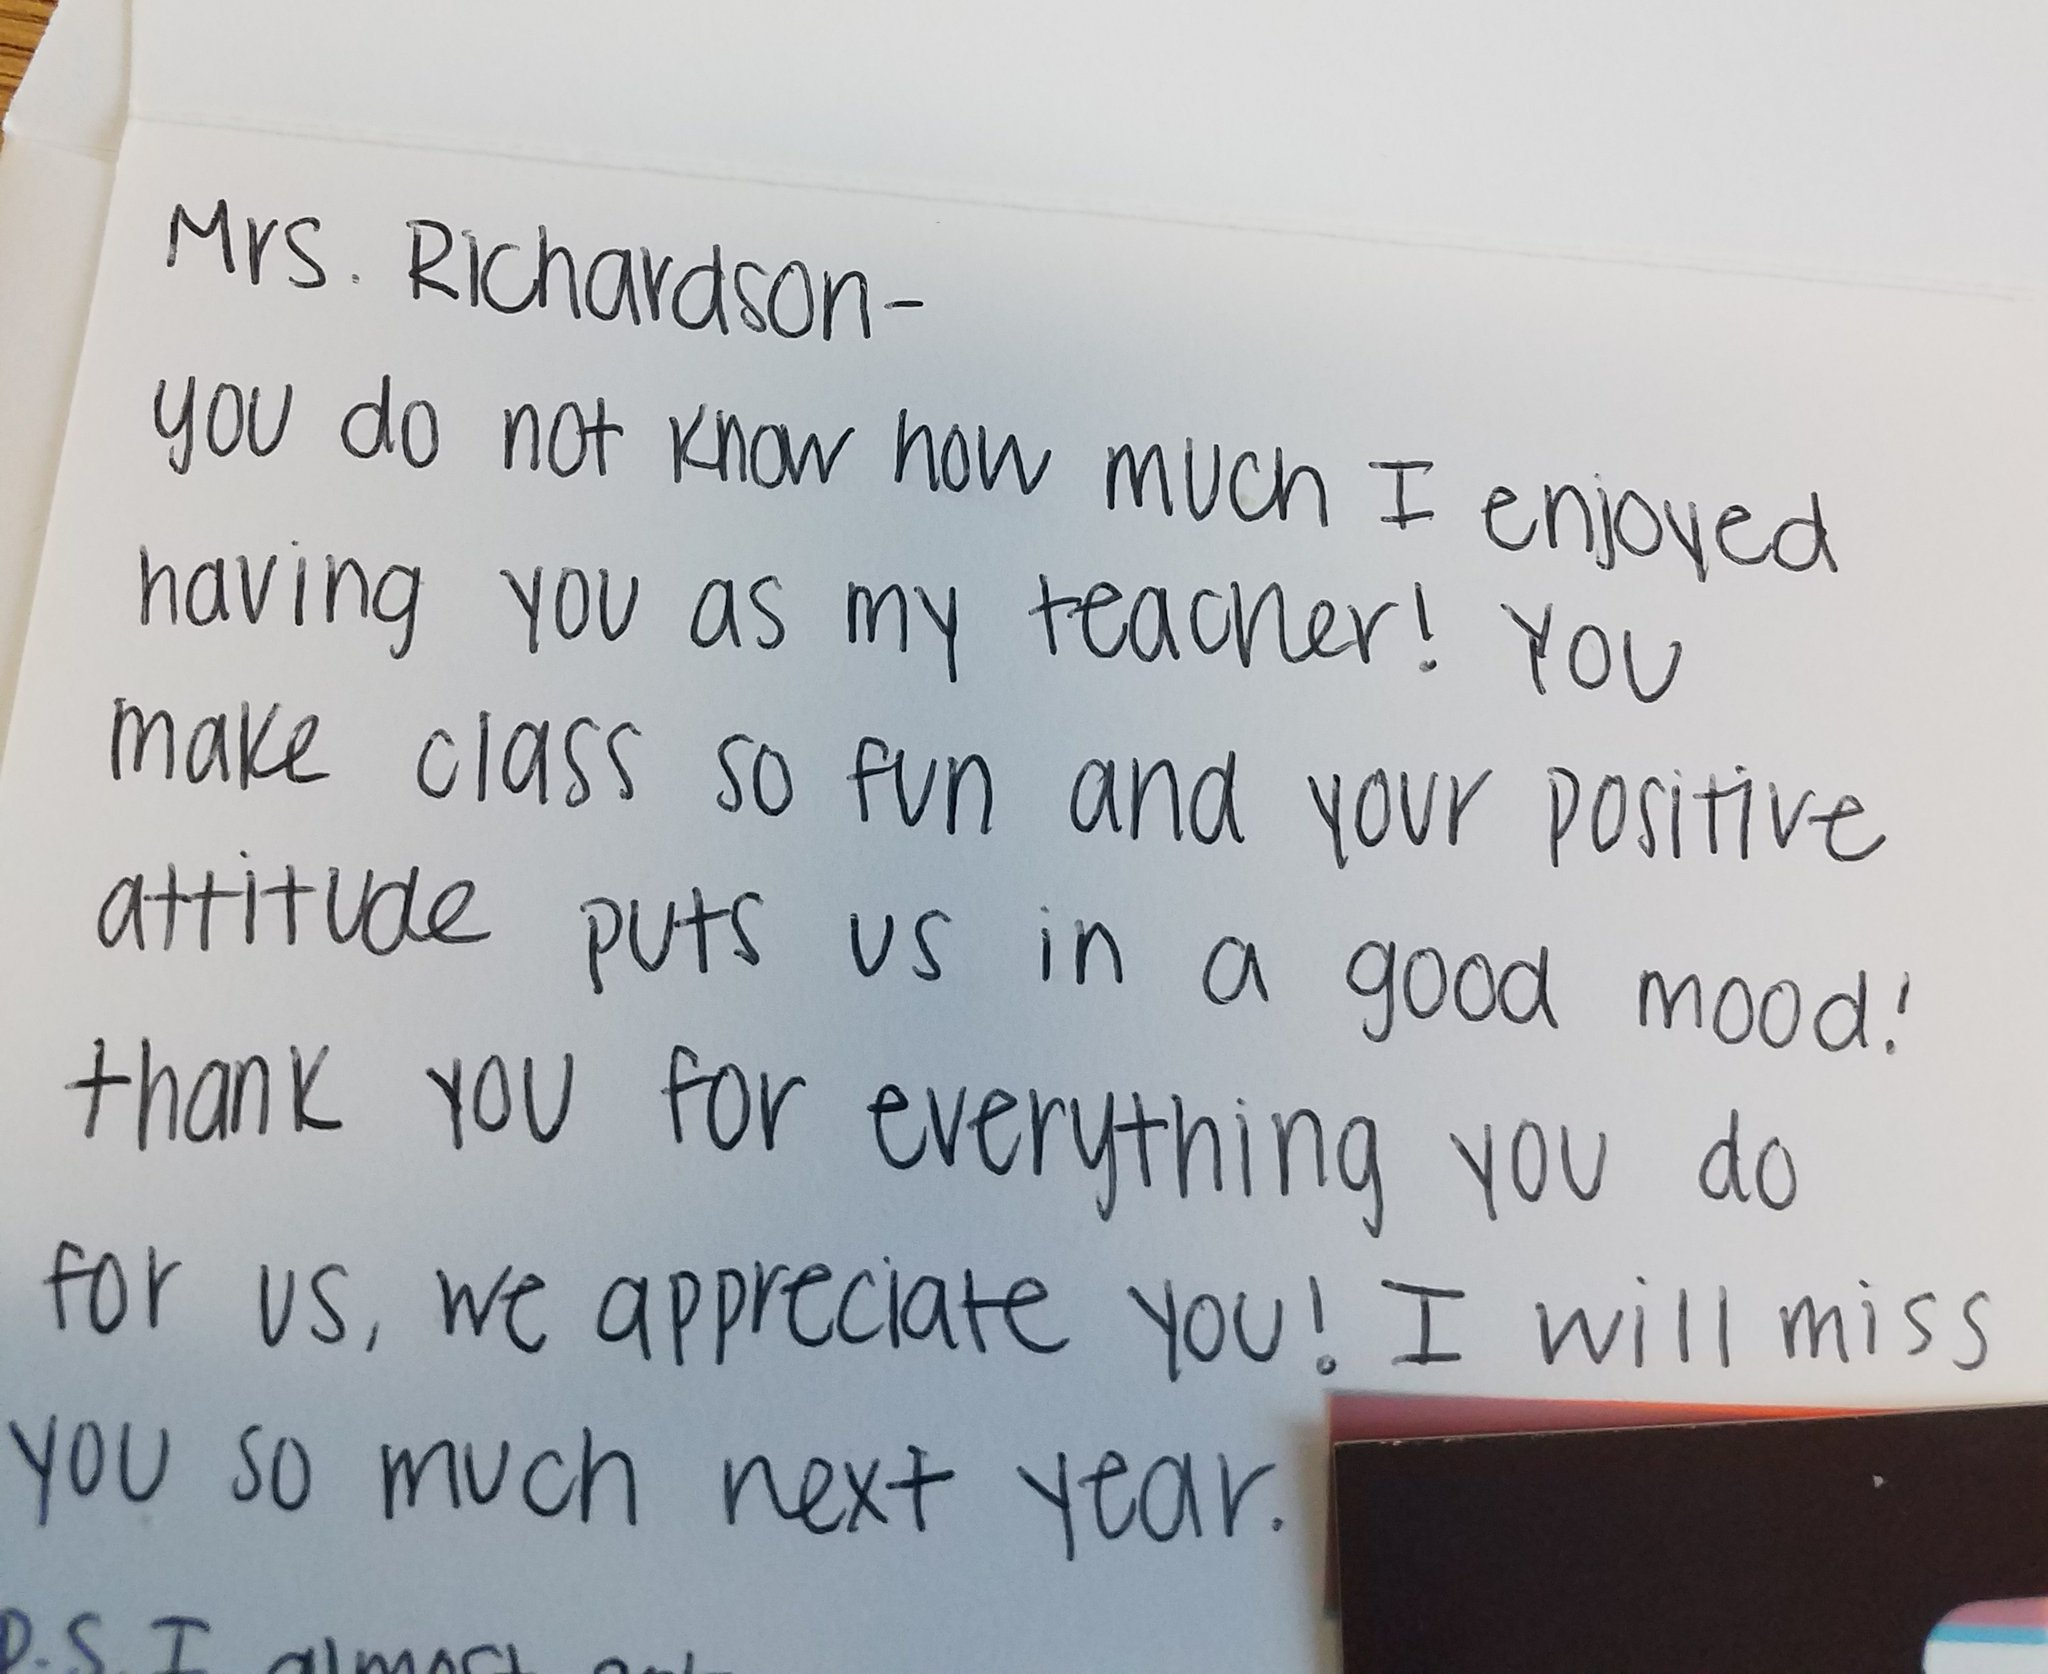 Mrs. Richardson-
you do not know how much I enjoyed
having you as my teacher! You
make class so fun and your positive
attitude puts us in a good mood!
thank you for everything you do
for us, we appreciate you! I will miss
you so much next year.
P.S. I almost